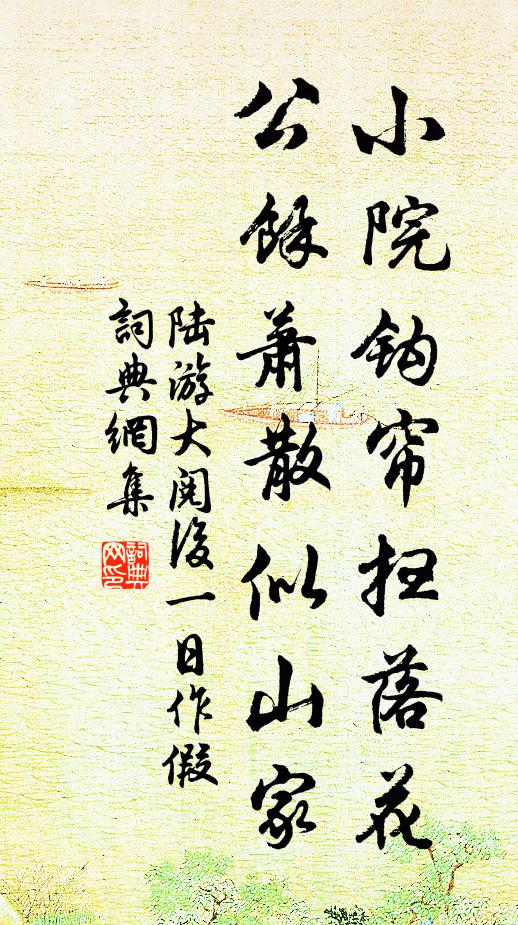 小院钩帘扫落花
公馀萧散似山家
陆游大阅后一日作假
词典網集
詞典网印